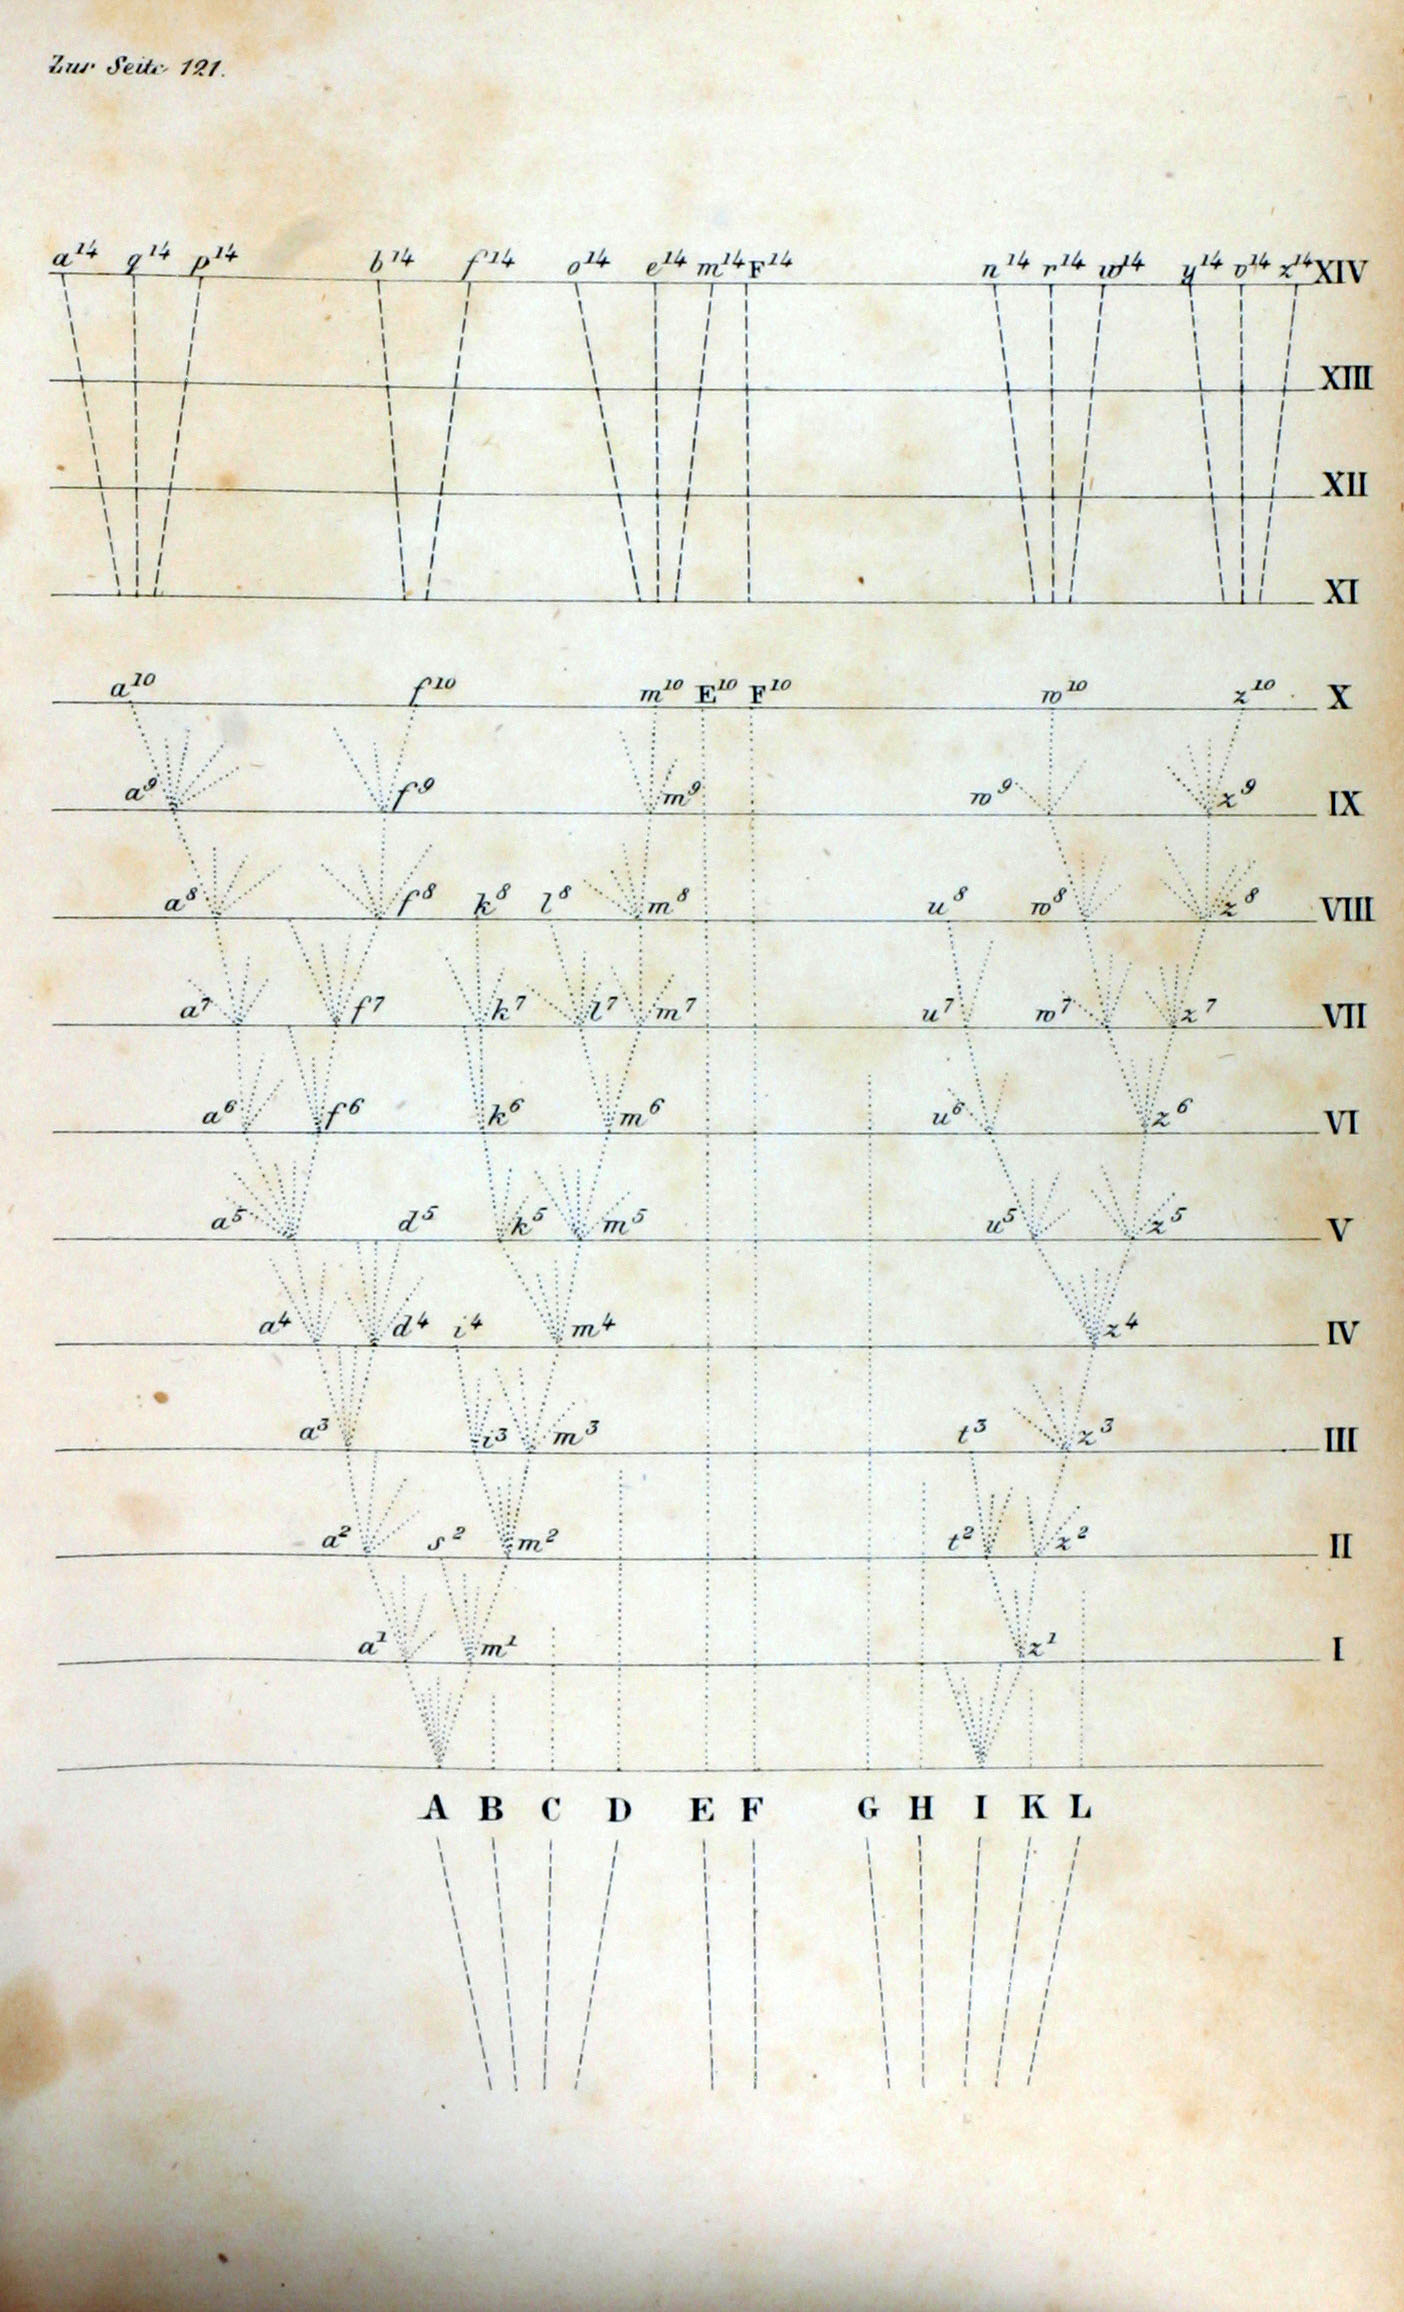 Zur Seite 121.
a¹⁴ q¹⁴ p¹⁴ b¹⁴ f¹⁴ o¹⁴ e¹⁴ m¹⁴ F¹⁴ n¹⁴ r¹⁴ w¹⁴ y¹⁴ v¹⁴ z¹⁴ XIV
XIII
XII
XI
a¹⁰ f¹⁰ m¹⁰ E¹⁰ F¹⁰ w¹⁰ z¹⁰ X
a⁹ f⁹ m⁹ w⁹ z⁹ IX
a⁸ f⁸ k⁸ l⁸ m⁸ u⁸ w⁸ z⁸ VIII
a⁷ f⁷ k⁷ l⁷ m⁷ u⁷ w⁷ z⁷ VII
a⁶ f⁶ k⁶ m⁶ u⁶ z⁶ VI
a⁵ d⁵ k⁵ m⁵ u⁵ z⁵ V
a⁴ d⁴ i⁴ m⁴ z⁴ IV
a³ i³ m³ t³ z³ III
a² s² m² t² z² II
a¹ m¹ z¹ I
A B C D E F G H I K L